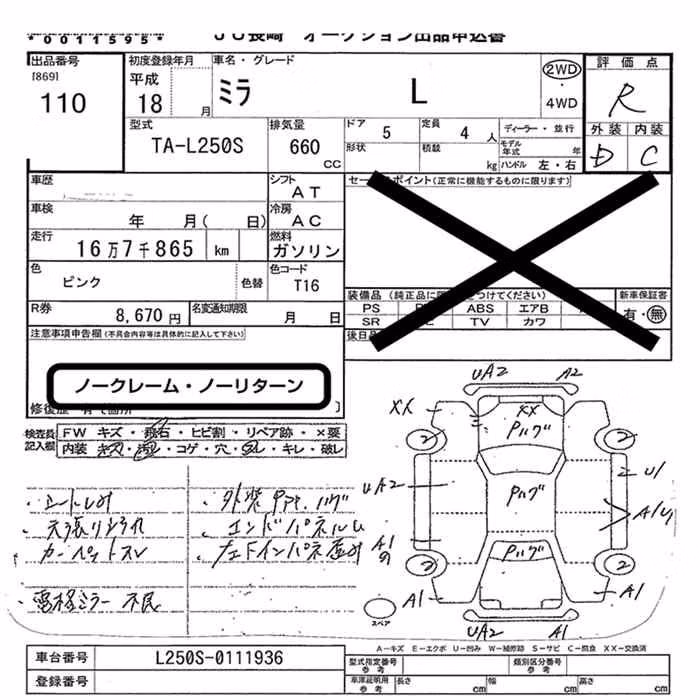 *0011595* JU長崎 オークション出品申込書
出品番号 初度登録年月 車名・グレード 評価点
[869] 平成 2WD
110 18 月 ミラ L ・ R
4WD
型式 排気量 ドア 5 定員 4 人 ディーラー・並行 外装 内装
TA-L250S 660 CC 形状 積載 kg モデル年式 年 D C
ハンドル 左・右
車歴 シフト AT セールスポイント(正常に機能するものに限ります)
車検 年 月( 日) 冷房 AC
走行 16万7千865 km 燃料 ガソリン
色 ピンク 色替 色コード T16
装備品 (純正品に つけてください) 新車保証書
R券 8,670円 名変通知期限 月 日 PS ABS エアB 有・無
SR TV カワ
注意事項申告欄(不具合内容等は具体的に記入して下さい) 後日品
ノークレーム・ノーリターン
修復歴 有て箇所 〕
検査員記入欄 FW キズ・飛石・ヒビ割・リペア跡・×要
内装 キズ・汚レ・コゲ・穴・スレ・キレ・破レ
UA2 A2
XX XX
Pハゲ
2 2
・シートしみ ・外装 Ppt.ハゲ UA2 Pハゲ U1
・天張りよごれ ・エンドパネルU A1
・カーペットスレ A1
Pハゲ
2 2
・電格ミラー不良 A1 A1
スペア
UA2 A1
A-キズ E-エクボ U-凹み W-補修跡 S-サビ C-腐食 XX-交換済
車台番号 L250S-0111936 型式指定番号 参考 類別区分番号 参考
登録番号 車庫証明用 参考 長さ cm 幅 cm 高さ cm